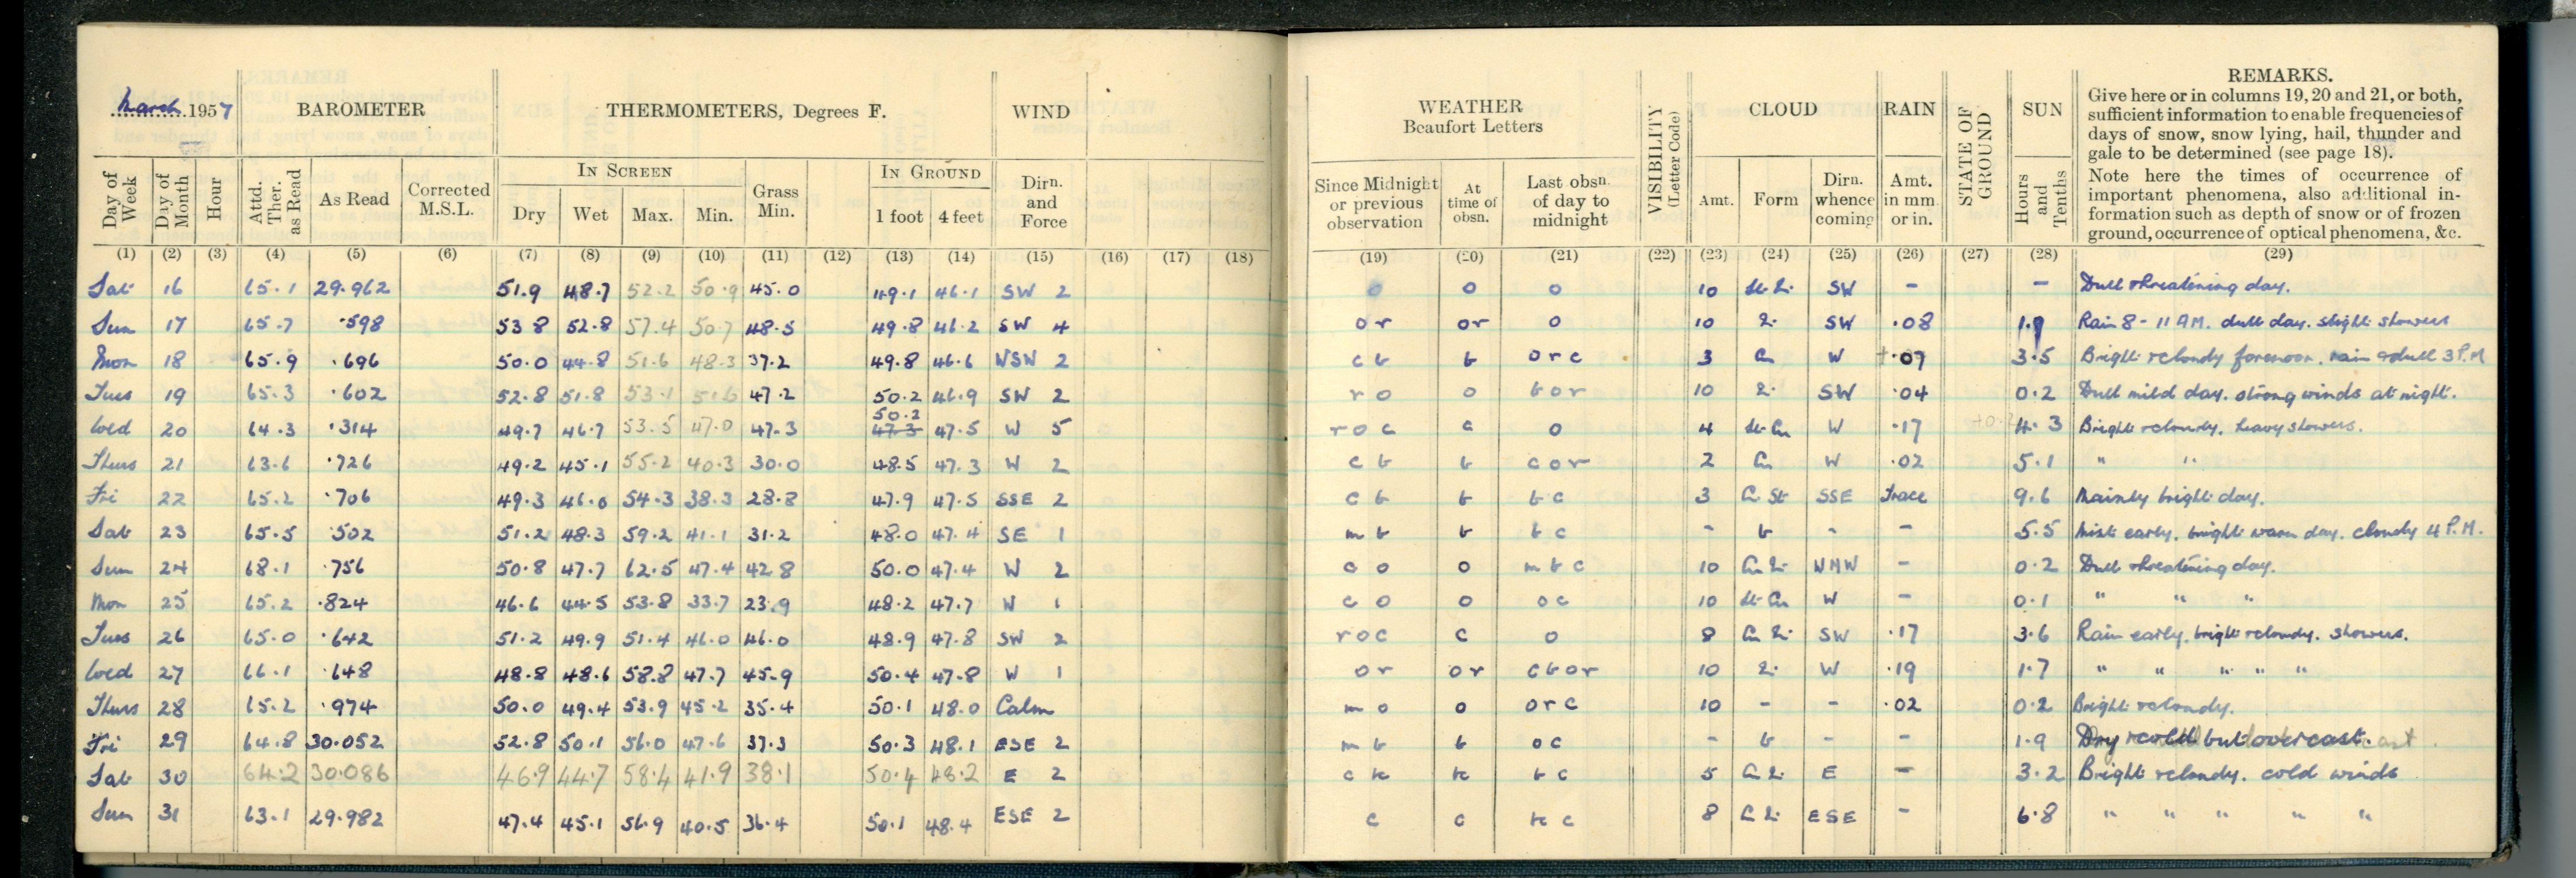 March 1957 BAROMETER THERMOMETERS, Degrees F. WIND
Day of Week Day of Month Hour Attd. Ther. as Read As Read Corrected M.S.L. IN SCREEN Dry Wet Max. Min. Grass Min. IN GROUND 1 foot 4 feet Dirn. and Force
(1) (2) (3) (4) (5) (6) (7) (8) (9) (10) (11) (12) (13) (14) (15) (16) (17) (18)
Sat 16 65.1 29.962 51.9 48.7 52.2 50.9 45.0 49.1 46.1 SW 2
Sun 17 65.7 .598 53.8 52.8 57.4 50.7 48.5 49.8 46.2 SW 4
Mon 18 65.9 .696 50.0 44.8 51.6 48.3 37.2 49.8 46.6 WSW 2
Tues 19 65.3 .602 52.8 51.8 53.1 51.6 47.2 50.2 46.9 SW 2
Wed 20 64.3 .314 49.7 46.7 53.5 47.0 47.3 50.2 47.3 47.5 W 5
Thurs 21 63.6 .726 49.2 45.1 55.2 40.3 30.0 48.5 47.3 W 2
Fri 22 65.2 .706 49.3 46.0 54.3 38.3 28.8 47.9 47.5 SSE 2
Sat 23 65.5 .502 51.2 48.3 59.2 41.1 31.2 48.0 47.4 SE 1
Sun 24 68.1 .756 50.8 47.7 62.5 47.4 42.8 50.0 47.4 W 2
Mon 25 65.2 .824 46.6 44.5 53.8 33.7 23.9 48.2 47.7 W 1
Tues 26 65.0 .642 51.2 49.9 51.4 46.0 46.0 48.9 47.8 SW 2
Wed 27 66.1 .648 48.8 48.6 58.8 47.7 45.9 50.4 47.8 W 1
Thurs 28 65.2 .974 50.0 49.4 53.9 45.2 35.4 50.1 48.0 Calm
Fri 29 64.8 30.052 52.8 50.1 56.0 47.6 37.3 50.3 48.1 ESE 2
Sat 30 64.2 30.086 46.9 44.7 58.4 41.9 38.1 50.4 48.2 E 2
Sun 31 63.1 29.982 47.4 45.1 56.9 40.5 36.4 50.1 48.4 ESE 2
WEATHER Beaufort Letters VISIBILITY (Letter Code) CLOUD RAIN STATE OF GROUND SUN REMARKS.
Give here or in columns 19, 20 and 21, or both,
sufficient information to enable frequencies of
days of snow, snow lying, hail, thunder and
gale to be determined (see page 18).
Note here the times of occurrence of
important phenomena, also additional in-
formation such as depth of snow or of frozen
ground, occurrence of optical phenomena, &c.
Since Midnight or previous observation At time of obsn. Last obsn. of day to midnight Amt. Form Dirn. whence coming Amt. in mm. or in. Hours and Tenths
(19) (20) (21) (22) (23) (24) (25) (26) (27) (28) (29)
o o o 10 SW - - Dull threatening day.
or or o 10 SW .08 1.9 Rain 8 - 11 AM. dull day. slight showers
c b b o r c 3 Cu W .07 3.5 Bright & cloudy forenoon. rain & dull 3 P.M
r o o b o r 10 SW .04 0.2 Dull mild day. strong winds at night.
r o c c o 4 St Cu W .17 4.3 Bright & cloudy. heavy showers.
c b b c o r 2 Cu W .02 5.1 " "
c b b b c 3 Cu St SSE Trace 9.6 Mainly bright day.
m b b b c - b - - 5.5 Mist early. bright warm day. cloudy 4 P.M.
c o o m b c 10 WNW - 0.2 Dull threatening day.
c o o o c 10 St Cu W - 0.1 " " "
r o c c o 8 SW .17 3.6 Rain early. bright & cloudy. showers.
o r o r c b o r 10 W .19 1.7 " " " " "
m o o o r c 10 - - .02 0.2 Bright & cloudy.
m b b o c - b - - 1.9 Dry & cold but overcast.
c bc bc b c 5 E - 3.2 Bright & cloudy. cold winds
c c bc c 8 ESE - 6.8 " " " " "